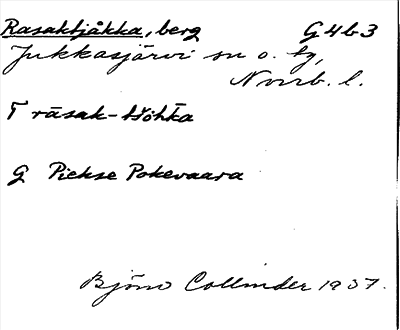 Rasaktjåkka, berg G4b3
Jukkasjärvi sn o. tg,
Norrb. l.
T rāsak-tšohka
G Piekse Pokevaara
Björn Collinder 1937.